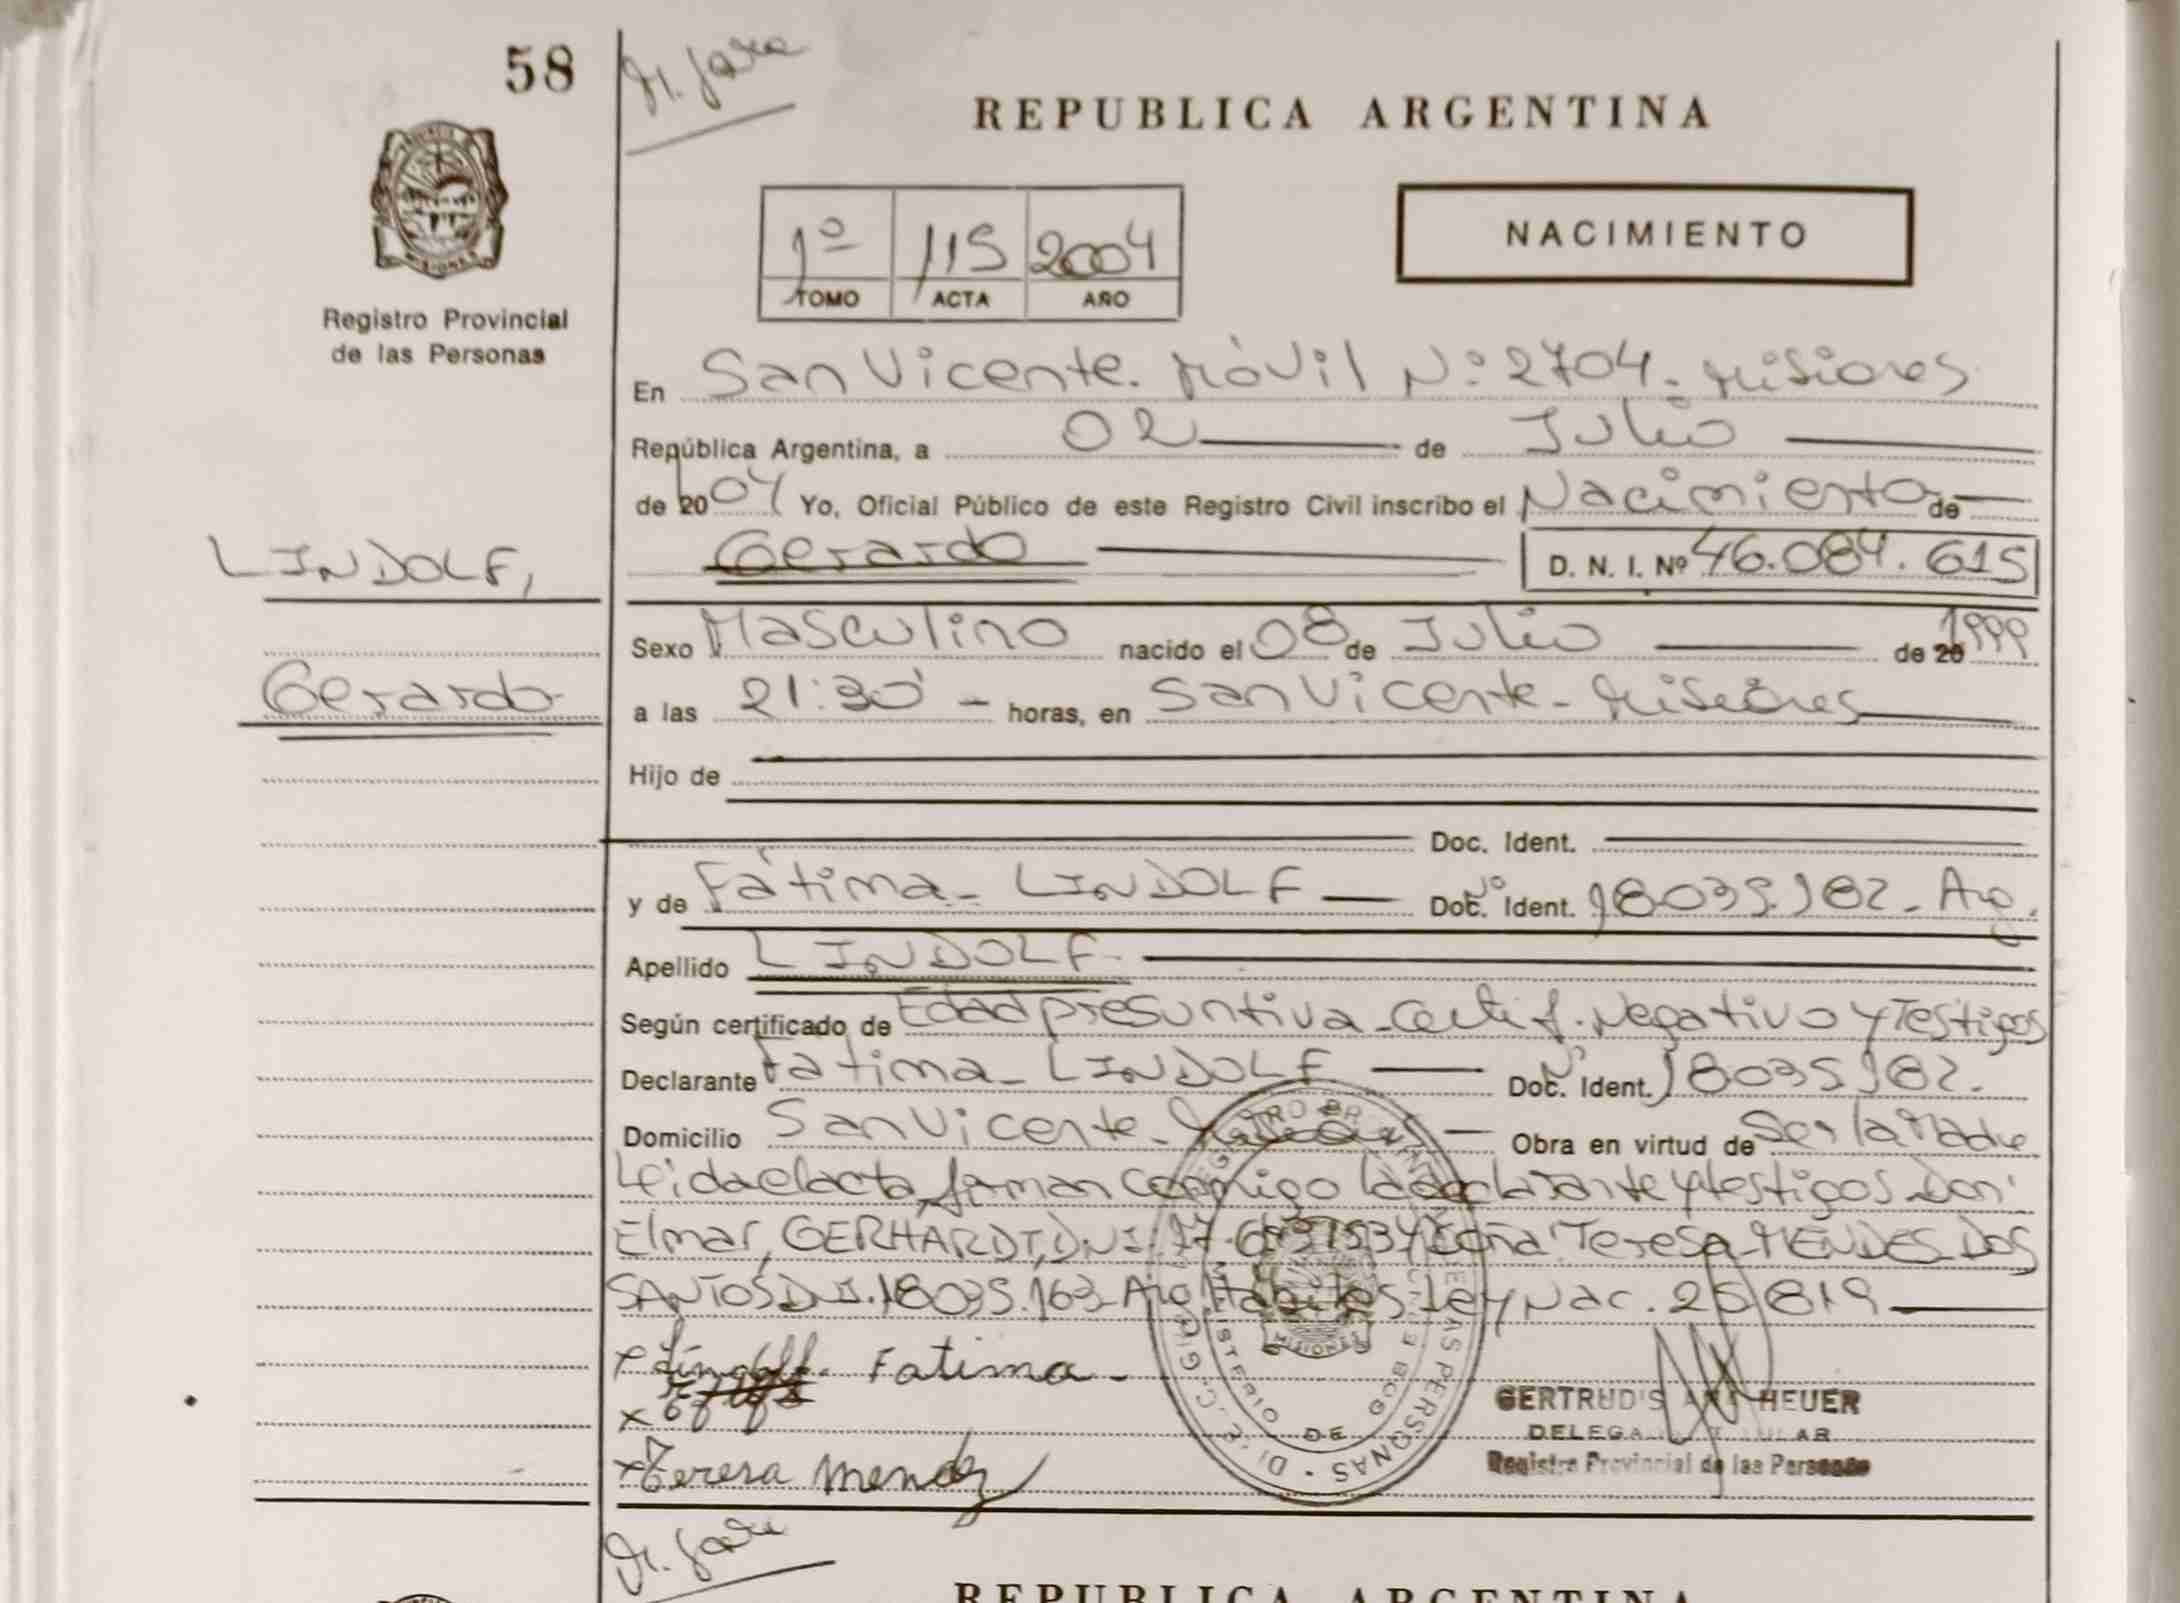 58
REPUBLICA ARGENTINA
MISIONES
Registro Provincial
de las Personas
1º 115 2004
TOMO ACTA AÑO
NACIMIENTO
En San Vicente. Móvil Nº 2704. Misiones
República Argentina, a 02 de Julio
de 2004 Yo, Oficial Público de este Registro Civil inscribo el Nacimiento de
LINDOLF,
Gerardo D. N. I. Nº 46.084.615
Sexo Masculino nacido el 08 de Julio de 20 1999
Gerardo
a las 21:30 - horas, en San Vicente - Misiones
Hijo de
Doc. Ident.
y de Fátima - LINDOLF Doc. Nº Ident. 18035182 - Arg.
Apellido LINDOLF
Según certificado de Edad presuntiva - Certif. Negativo y Testigos
Declarante Fátima - LINDOLF Doc. Nº Ident. 18035182.
Domicilio San Vicente - Misiones Obra en virtud de Ser la Madre
Leida el acta, firman conmigo la declarante y testigos Don:
Elmar, GERHARDT, D.N.I. Doña Teresa - MENDES DOS
SANTOS D.N.I. 18035.163 - Arg. Hábiles. Ley Nac. 25819
x Lindolf. Fatima -
x
x Teresa Mendez
GERTRUDIS HEUER
DELEGA
Registro Provincial de las Personas
REPUBLICA ARGENTINA